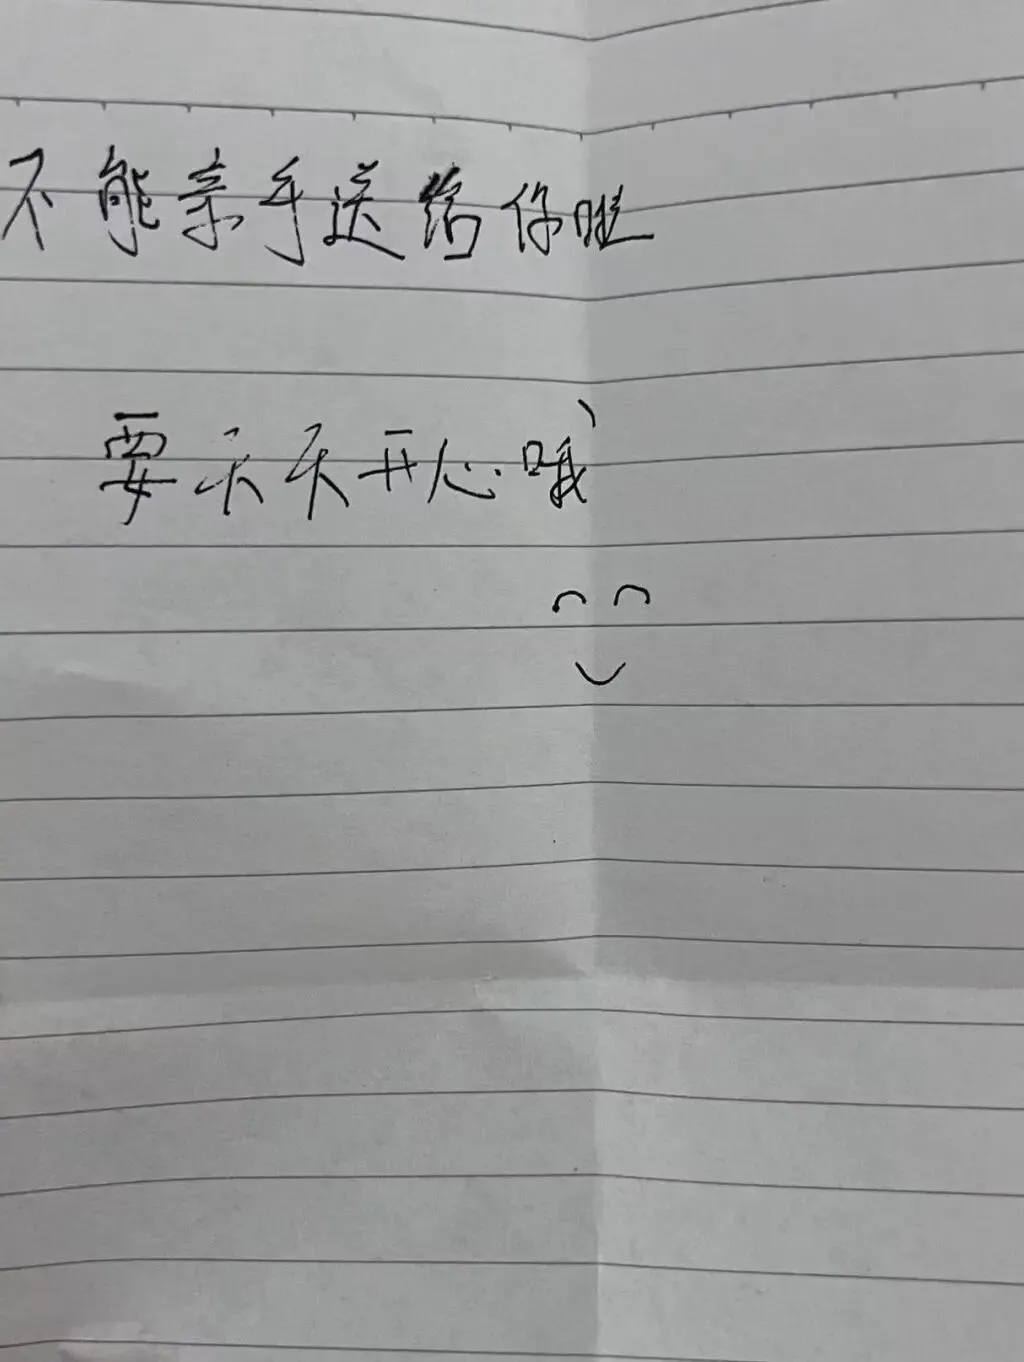 不能亲手送给你啦
要天天开心哦